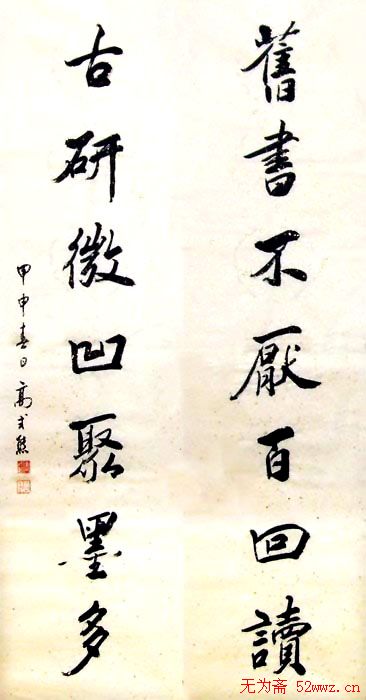 舊書不厭百回讀
古研微凹聚墨多
甲申春日高式熊
无为斋 52wwz.cn